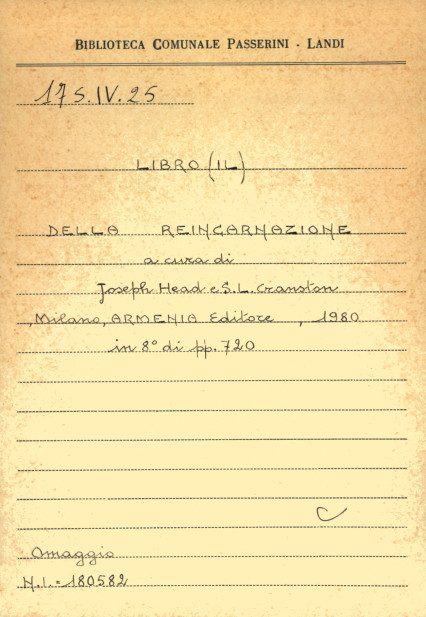 BIBLIOTECA COMUNALE PASSERINI - LANDI
17 S.IV.25
LIBRO (IL)
DELLA REINCARNAZIONE
a cura di
Joseph Head e S.L. Cranston
Milano, ARMENIA Editore , 1980
in 8° di pp. 720
C
Omaggio
N.I. = 180582